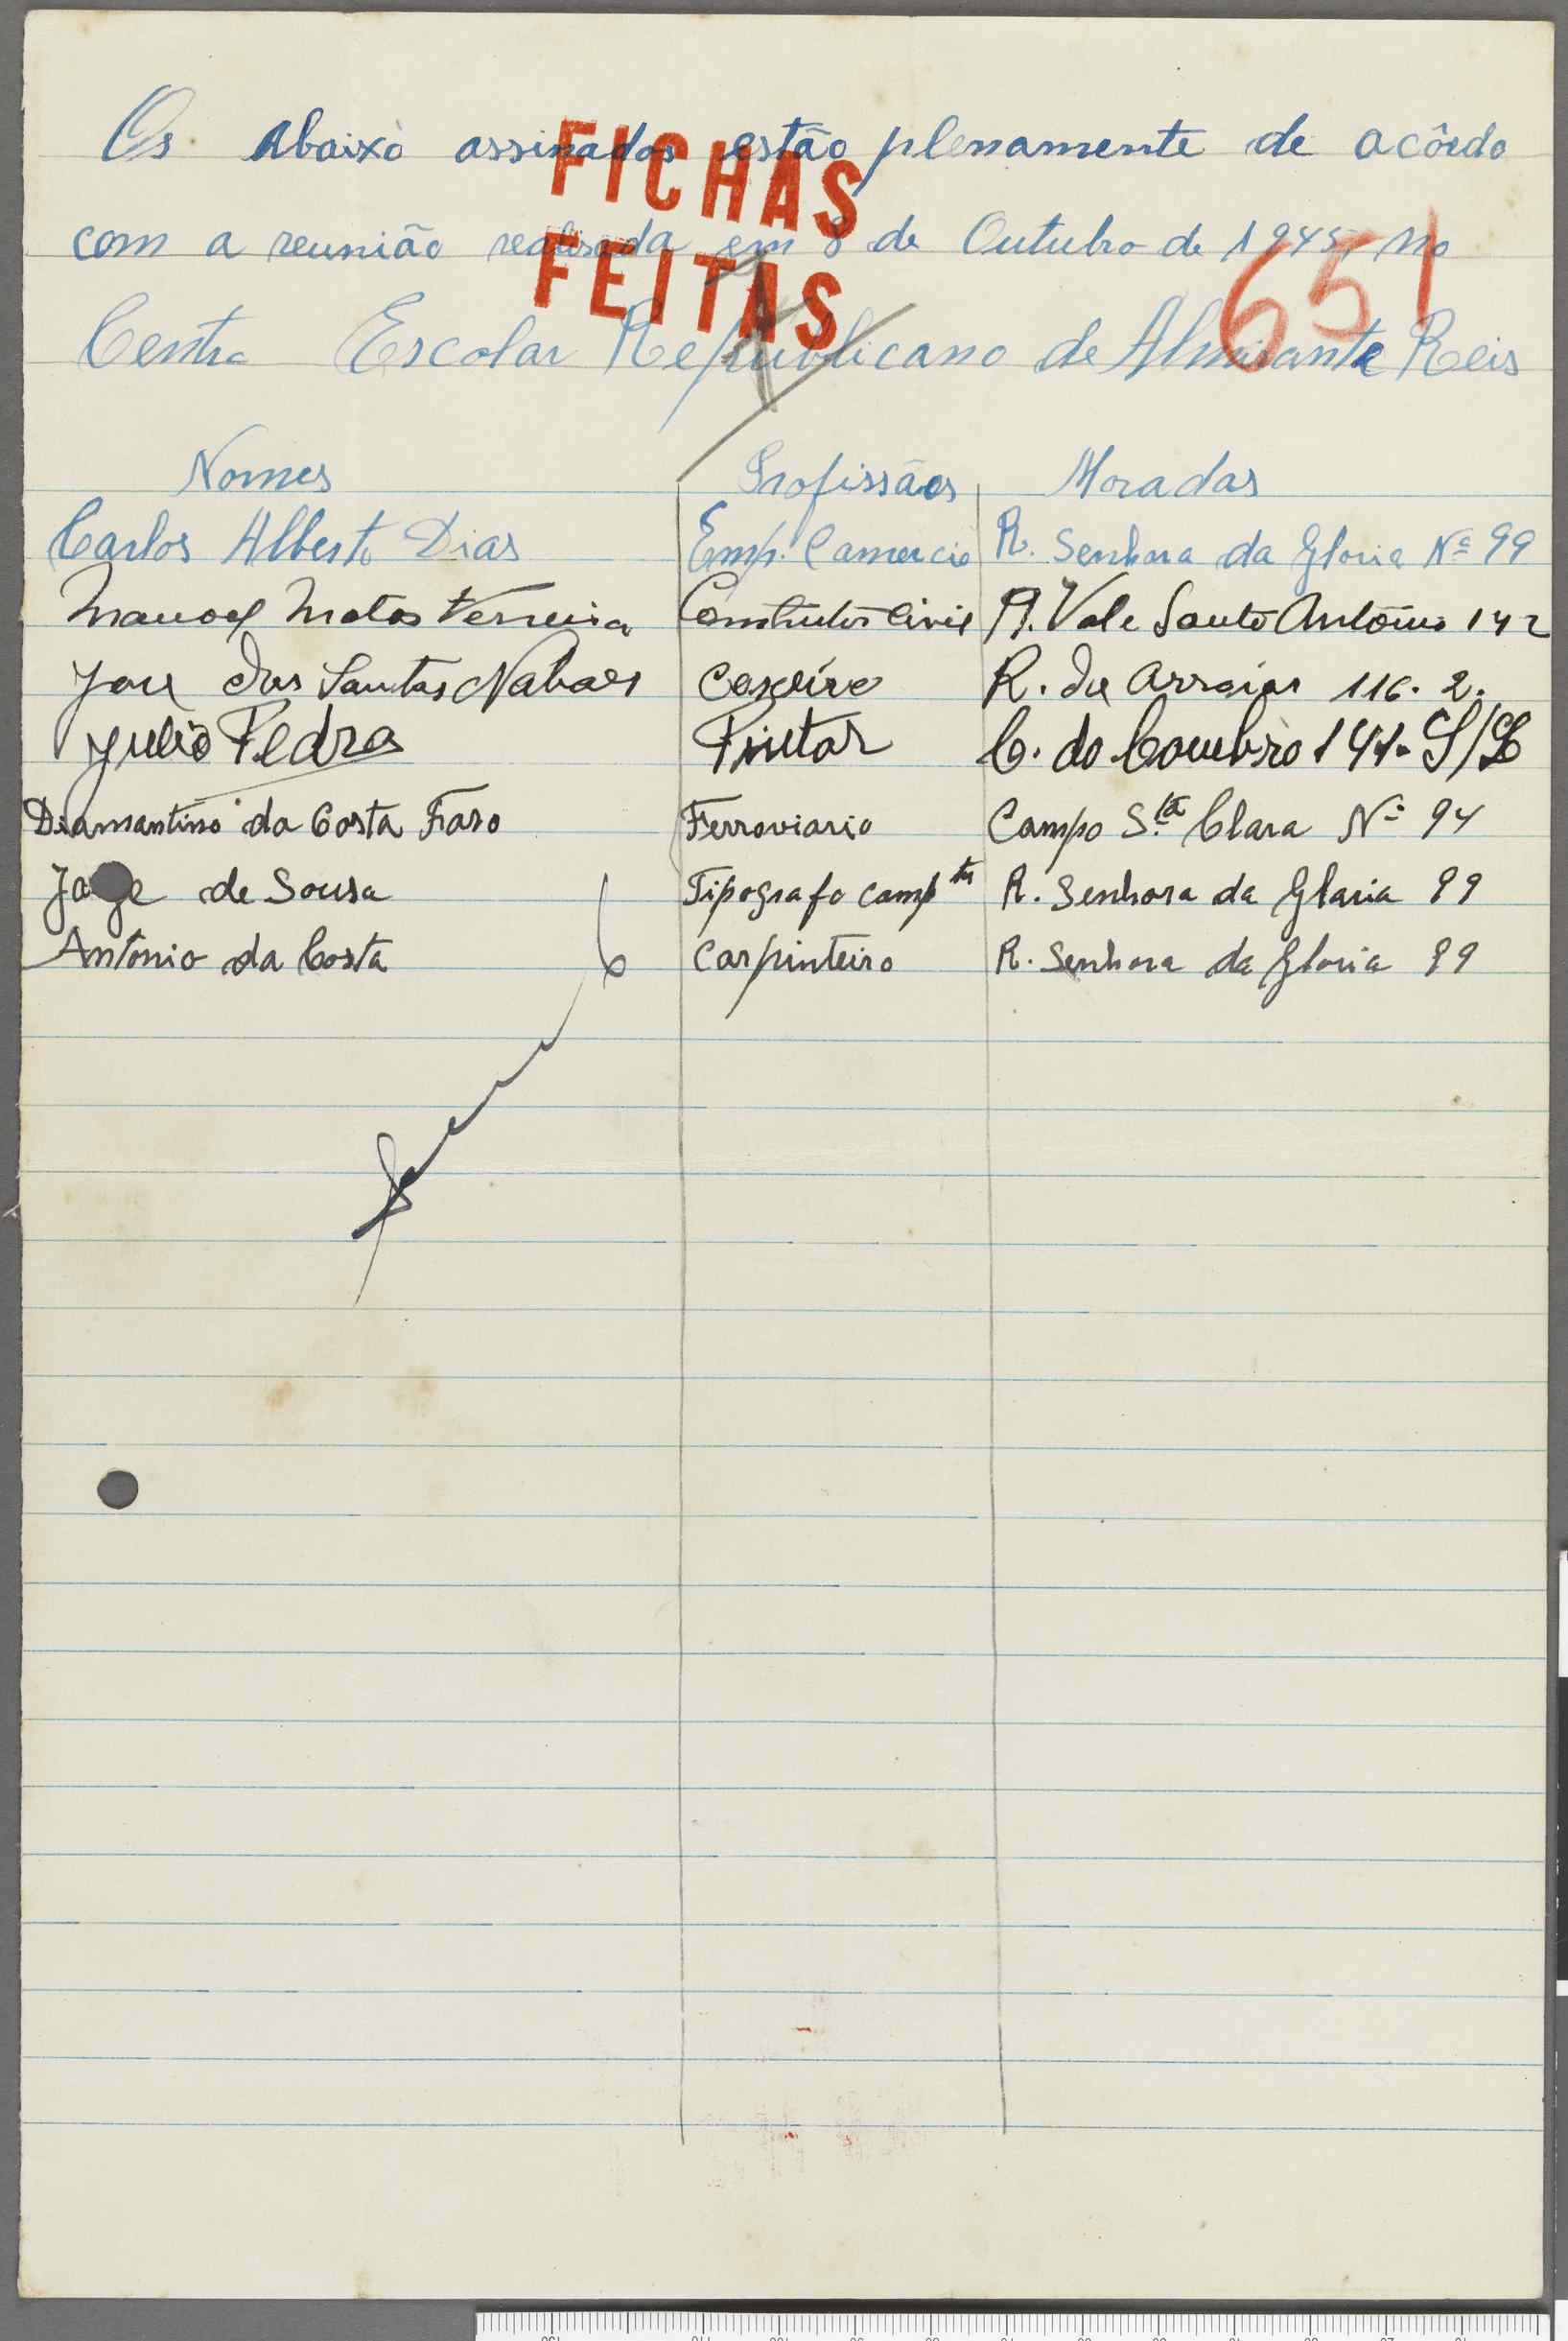 Os abaixo assinados estão plenamente de acôrdo
com a reunião realisada em 8 de Outubro de 1945, no
Centro Escolar Republicano de Almirante Reis
FICHAS
FEITAS
651
Nomes Profissãos Moradas
Carlos Alberto Dias Emp. Comercio R. Senhora da Gloria Nº 99
Manoel Matos Ferreira Construtor Civil R. Vale Santo António 142
José dos Santos Nabaes R. de Arroios 116. 2.
Julio Pedro Pintor C. do Combro 141
Diamantino da Costa Faro Ferroviario Campo S.ta Clara Nº 94
de Sousa Tipografo R. Senhora da Gloria 99
António da Costa Carpinteiro R. Senhora da Gloria 99